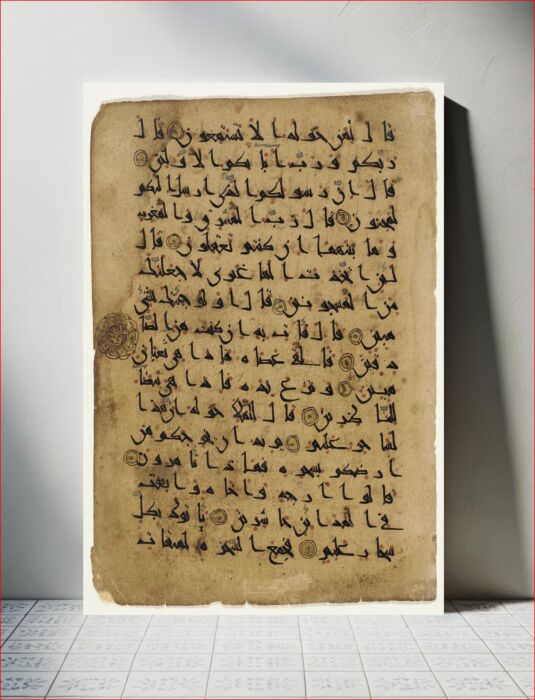 قال لمن حوله الا تستمعون قال
ربكم ورب ابائكم الاولين
قال ان رسولكم الذي ارسل اليكم
لمجنون قال رب المشرق والمغرب
وما بينهما ان كنتم تعقلون قال
لئن اتخذت الها غيري لاجعلنك
من المسجونين قال اولو جئتك بشي
مبين قال فات به ان كنت من الصا
دقين فالقى عصاه فاذا هي ثعبان
مبين ونزع يده فاذا هي بيضا
للناظرين قال للملا حوله ان هذا
لساحر عليم يريد ان يخرجكم من
ارضكم بسحره فماذا تامرون
قالوا ارجه واخاه وابعث
في المداين حاشرين ياتوك بكل
سحار عليم فجمع السحرة لميقات